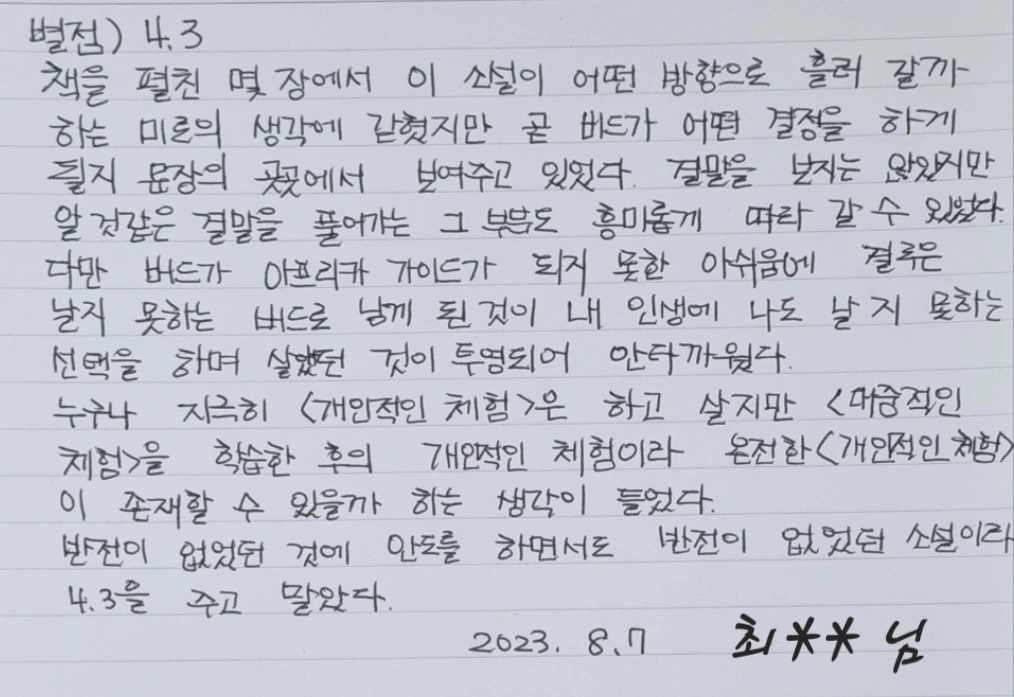 별점) 4.3
책을 펼친 몇 장에서 이 소설이 어떤 방향으로 흘러 갈까
하는 미로의 생각에 갇혔지만 곧 버드가 어떤 결정을 하게
될지 문장의 곳곳에서 보여주고 있었다. 결말을 보지는 않았지만
알 것같은 결말을 풀어가는 그 부분도 흥미롭게 따라 갈 수 있었다.
다만 버드가 아프리카 가이드가 되지 못한 아쉬움에 결국은
날지 못하는 버드로 남게 된 것이 내 인생에 나도 날 지 못하는
선택을 하며 살았던 것이 투영되어 안타까웠다.
누구나 지극히 <개인적인 체험>은 하고 살지만 <대중적인
체험>을 학습한 후의 개인적인 체험이라 온전한 <개인적인 체험>
이 존재할 수 있을까 하는 생각이 들었다.
반전이 없었던 것에 안도를 하면서도 반전이 없었던 소설이라
4.3을 주고 말았다.
2023. 8.7 최** 님